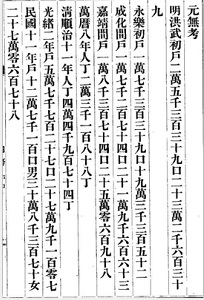 元無考
明洪武初戶二萬五千三百三十九口二十三萬二千六百三十
九
永樂初戶一萬七千三百三十九口十九萬三千三百五十二
成化間戶一萬七千三百七十四口二十一萬九千六百六十三
嘉靖間戶一萬八千三百七十四口二十五萬零六百九十八
萬曆八年人丁二萬三千一百八十八丁
清順治十一年人丁四萬四千九百七十四丁
光緒二年戶五萬七千七百二十七口二十七萬九千一百零七
民國十一年戶十二萬七千一百口男三十萬八千三百七十女
二十七萬零六百七十八